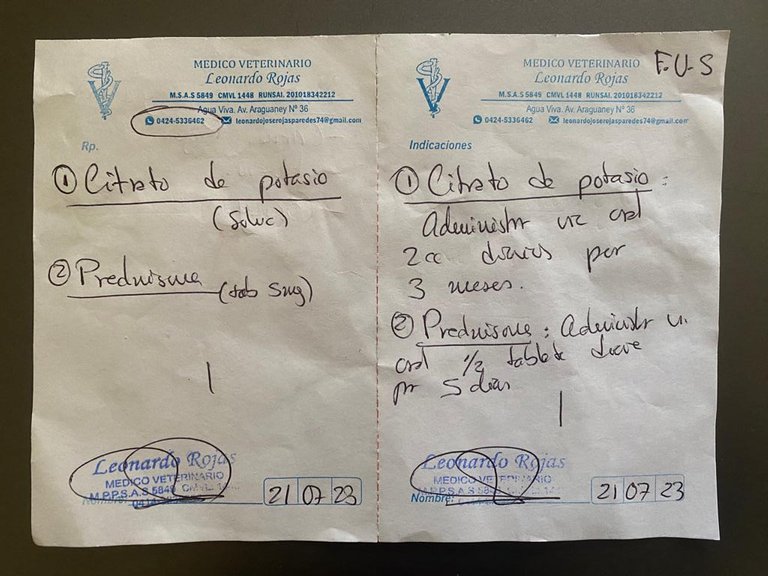 MEDICO VETERINARIO
Leonardo Rojas
M.S.A.S 5849 CMVL 1448 RUNSAI. 201018342212
Agua Viva. Av. Araguaney Nº 36
0424-5336462 leonardojoserojasparedes74@gmail.com
Rp.
① Citrato de potasio
(Soluc)
② Prednisona (tab 5mg)
Leonardo Rojas
MEDICO VETERINARIO
M.P.P.S.A.S 5849
21 07 23
F.U.S
MEDICO VETERINARIO
Leonardo Rojas
M.S.A.S 5849 CMVL 1448 RUNSAI. 201018342212
Agua Viva. Av. Araguaney Nº 36
0424-5336462 leonardojoserojasparedes74@gmail.com
Indicaciones
① Citrato de potasio:
Administrar via oral
2cc diarios por
3 meses.
② Prednisona: Administrar vi
oral 1/2 tableta
por 5 dias
Leonardo Rojas
MEDICO VETERINARIO
M.P.P.S.A.S
Nombre:
21 07 23